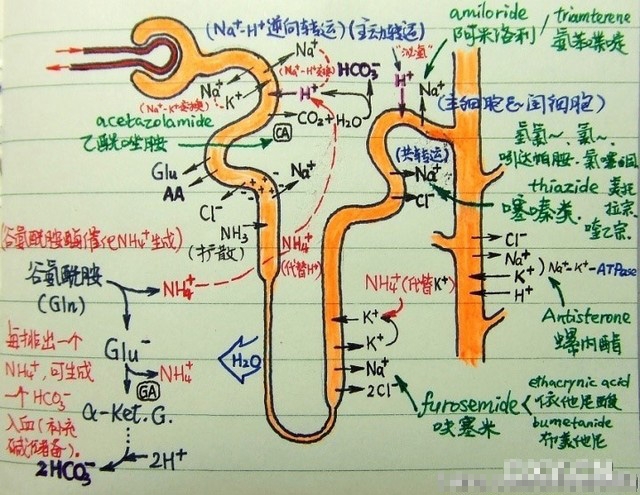 (Na⁺-H⁺逆向转运)(主动转运)
amiloride / triamterene
阿米洛利 / 氨苯喋啶
"泌氢"
Na⁺
(Na⁺-H⁺交换)
HCO₃⁻
H⁺
Na⁺
Na⁺
K⁺
H⁺
(Na⁺-K⁺交换)
CO₂+H₂O
(主细胞和闰细胞)
acetazolamide
乙酰唑胺
CA
氢氯~、氯~、
吲达帕胺、氯噻酮
(共转运)
Na⁺
thiazide
噻嗪类
美托
拉宗
喹乙宗
Glu
AA
Na⁺
Cl⁻
Cl⁻
NH₃
(扩散)
NH₄⁺
(代替H⁺)
Cl⁻
Na⁺
K⁺
H⁺
Na⁺-K⁺-ATPase
(谷氨酰胺酶催化NH₄⁺生成)
谷氨酰胺
(Gln)
NH₄⁺
NH₄⁺(代替K⁺)
K⁺
K⁺
Na⁺
2Cl⁻
Antisterone
螺内酯
Glu⁻
NH₄⁺
GA
α-Ket.G.
2H⁺
2HCO₃⁻
H₂O
每排出一个
NH₄⁺,可生成
一个HCO₃⁻
入血(补充
碱储备)。
furosemide
呋塞米
ethacrynic acid
依他尼酸
bumetanide
布美他尼